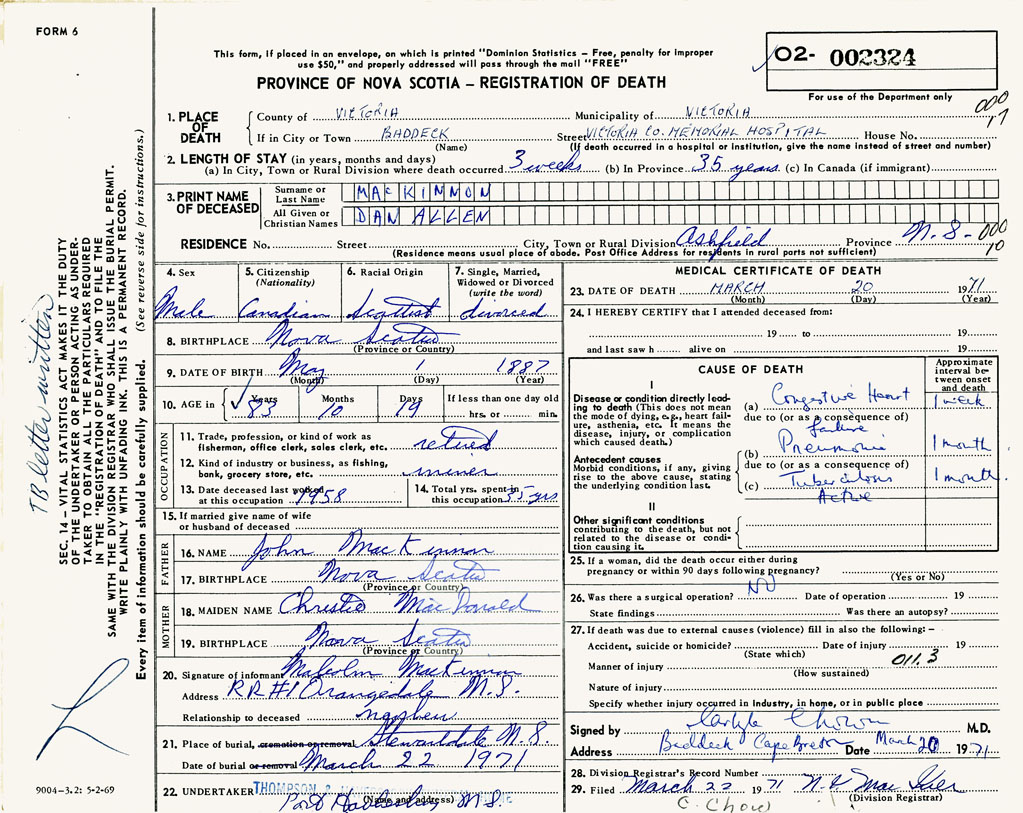 FORM 6
This form, if placed in an envelope, on which is printed "Dominion Statistics – Free, penalty for improper
use $50," and properly addressed will pass through the mail "FREE"
O2- 002324
For use of the Department only
PROVINCE OF NOVA SCOTIA – REGISTRATION OF DEATH
000
17
1. PLACE OF DEATH
County of VICTORIA Municipality of VICTORIA
If in City or Town BADDECK Street VICTORIA Co. MEMORIAL HOSPITAL House No.
(Name) (If death occurred in a hospital or institution, give the name instead of street and number)
2. LENGTH OF STAY (in years, months and days)
(a) In City, Town or Rural Division where death occurred 3 weeks (b) In Province 35 years (c) In Canada (if immigrant)
3. PRINT NAME OF DECEASED
Surname or Last Name MACKINNON
All Given or Christian Names DAN ALLEN
RESIDENCE No. Street City, Town or Rural Division Ashfield Province N.S. 000
10
(Residence means usual place of abode. Post Office Address for residents in rural parts not sufficient)
4. Sex Male
5. Citizenship (Nationality) Canadian
6. Racial Origin Scottish
7. Single, Married, Widowed or Divorced (write the word) divorced
8. BIRTHPLACE Nova Scotia
(Province or Country)
9. DATE OF BIRTH May 1 1887
(Month) (Day) (Year)
10. AGE in Years 83 Months 10 Days 19 If less than one day old hrs. or min.
OCCUPATION
11. Trade, profession, or kind of work as
fisherman, office clerk, sales clerk, etc. retired
12. Kind of industry or business, as fishing,
bank, grocery store, etc. miner
13. Date deceased last worked
at this occupation 1958
14. Total yrs. spent in
this occupation 35 yrs
15. If married give name of wife
or husband of deceased
FATHER
16. NAME John MacKinnon
17. BIRTHPLACE Nova Scotia
(Province or Country)
MOTHER
18. MAIDEN NAME Christie MacDonald
19. BIRTHPLACE Nova Scotia
(Province or Country)
20. Signature of informant Malcolm MacKinnon
Address RR#1 Orangedale N.S.
Relationship to deceased nephew
21. Place of burial, cremation or removal Stewartdale N.S
Date of burial or removal March 22 1971
22. UNDERTAKER THOMPSON
(Name and address)
Port Hawkesbury N.S.
MEDICAL CERTIFICATE OF DEATH
23. DATE OF DEATH MARCH 20 1971
(Month) (Day) (Year)
24. I HEREBY CERTIFY that I attended deceased from:
19 to 19
and last saw h alive on 19
CAUSE OF DEATH
Approximate interval between onset and death
I
Disease or condition directly leading to death (This does not mean the mode of dying, e.g., heart failure, asthenia, etc. It means the disease, injury, or complication which caused death.)
(a) Congestive Heart failure 1 week
due to (or as a consequence of)
Antecedent causes
Morbid conditions, if any, giving rise to the above cause, stating the underlying condition last.
(b) Pneumonia 1 month
due to (or as a consequence of)
(c) Tuberculosis 1 month.
Active
II
Other significant conditions
contributing to the death, but not related to the disease or condition causing it.
25. If a woman, did the death occur either during
pregnancy or within 90 days following pregnancy?
(Yes or No)
26. Was there a surgical operation? NO Date of operation 19
State findings Was there an autopsy?
27. If death was due to external causes (violence) fill in also the following: –
Accident, suicide or homicide? Date of injury 19
(State which)
011.3
Manner of injury
(How sustained)
Nature of injury
Specify whether injury occurred in industry, in home, or in public place
Signed by Carlyle Chow M.D.
Address Baddeck Cape Breton Date March 20 1971
28. Division Registrar's Record Number
29. Filed March 22 1971
(Division Registrar)
C. Chow
TB letter written
SEC. 14 – VITAL STATISTICS ACT MAKES IT THE DUTY
OF THE UNDERTAKER OR PERSON ACTING AS UNDER-
TAKER TO OBTAIN ALL THE PARTICULARS REQUIRED
IN THE "REGISTRATION OF DEATH" AND TO FILE THE
SAME WITH THE DIVISION REGISTRAR WHO SHALL ISSUE THE BURIAL PERMIT.
WRITE PLAINLY WITH UNFADING INK. THIS IS A PERMANENT RECORD.
Every item of information should be carefully supplied. (See reverse side for instructions.)
9004–3.2: 5-2-69